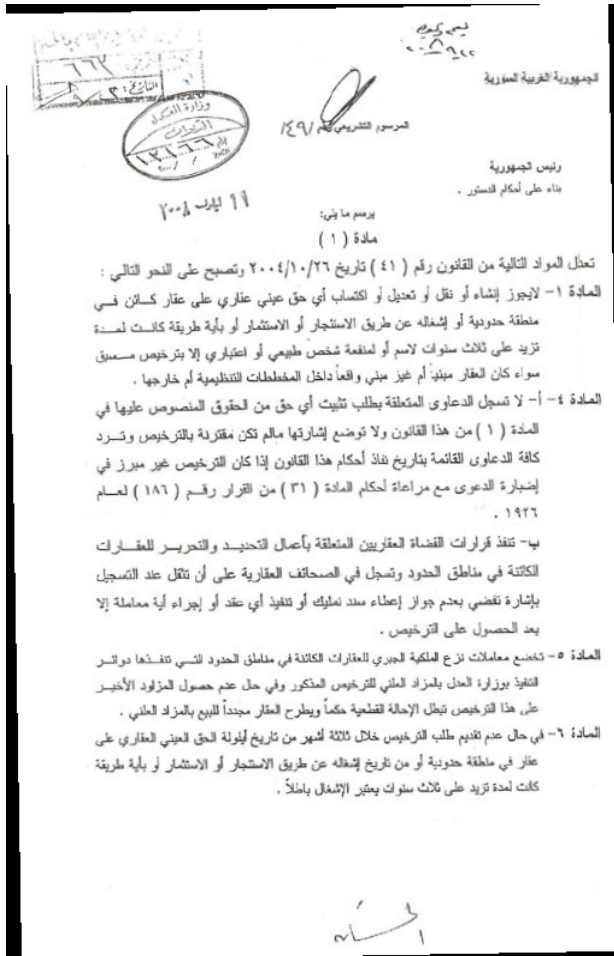 ٦٦٢
التاريخ:
وزارة العدل
الديوان
١٣١٦٦
١١ ايلول ٢٠٠٨
الجمهورية العربية السورية
المرسوم التشريعي رقم /٤٩/
رئيس الجمهورية
بناء على أحكام الدستور .
يرسم ما يلي:
مادة ( ١ )
تعدل المواد التالية من القانون رقم ( ٤١ ) تاريخ ٢٠٠٤/١٠/٢٦ وتصبح على النحو التالي :
المادة ١- لايجوز إنشاء أو نقل أو تعديل أو اكتساب أي حق عيني عقاري على عقار كائن في
منطقة حدودية أو إشغاله عن طريق الاستئجار أو الاستثمار أو بأية طريقة كانت لمدة
تزيد على ثلاث سنوات لاسم أو لمنفعة شخص طبيعي أو اعتباري إلا بترخيص مسبق
سواء كان العقار مبنياً أم غير مبني واقعاً داخل المخططات التنظيمية أم خارجها .
المادة ٤- أ- لا تسجل الدعاوى المتعلقة بطلب تثبيت أي حق من الحقوق المنصوص عليها في
المادة ( ١ ) من هذا القانون ولا توضع إشارتها مالم تكن مقترنة بالترخيص وترد
كافة الدعاوى القائمة بتاريخ نفاذ أحكام هذا القانون إذا كان الترخيص غير مبرز في
إضبارة الدعوى مع مراعاة أحكام المادة ( ٣١ ) من القرار رقم ( ١٨٦ ) لعام
١٩٢٦ .
ب- تنفذ قرارات القضاة العقاريين المتعلقة بأعمال التحديد والتحرير للعقارات
الكائنة في مناطق الحدود وتسجل في الصحائف العقارية على أن تثقل عند التسجيل
بإشارة تقضي بعدم جواز إعطاء سند تمليك أو تنفيذ أي عقد أو إجراء أية معاملة إلا
بعد الحصول على الترخيص .
المادة ٥- تخضع معاملات نزع الملكية الجبري للعقارات الكائنة في مناطق الحدود التي تنفذها دوائر
التنفيذ بوزارة العدل بالمزاد العلني للترخيص المذكور وفي حال عدم حصول المزاود الأخير
على هذا الترخيص تبطل الإحالة القطعية حكماً ويطرح العقار مجدداً للبيع بالمزاد العلني .
المادة ٦- في حال عدم تقديم طلب الترخيص خلال ثلاثة أشهر من تاريخ أيلولة الحق العيني العقاري على
عقار في منطقة حدودية أو من تاريخ إشغاله عن طريق الاستئجار أو الاستثمار أو بأية طريقة
كانت لمدة تزيد على ثلاث سنوات يعتبر الإشغال باطلاً .